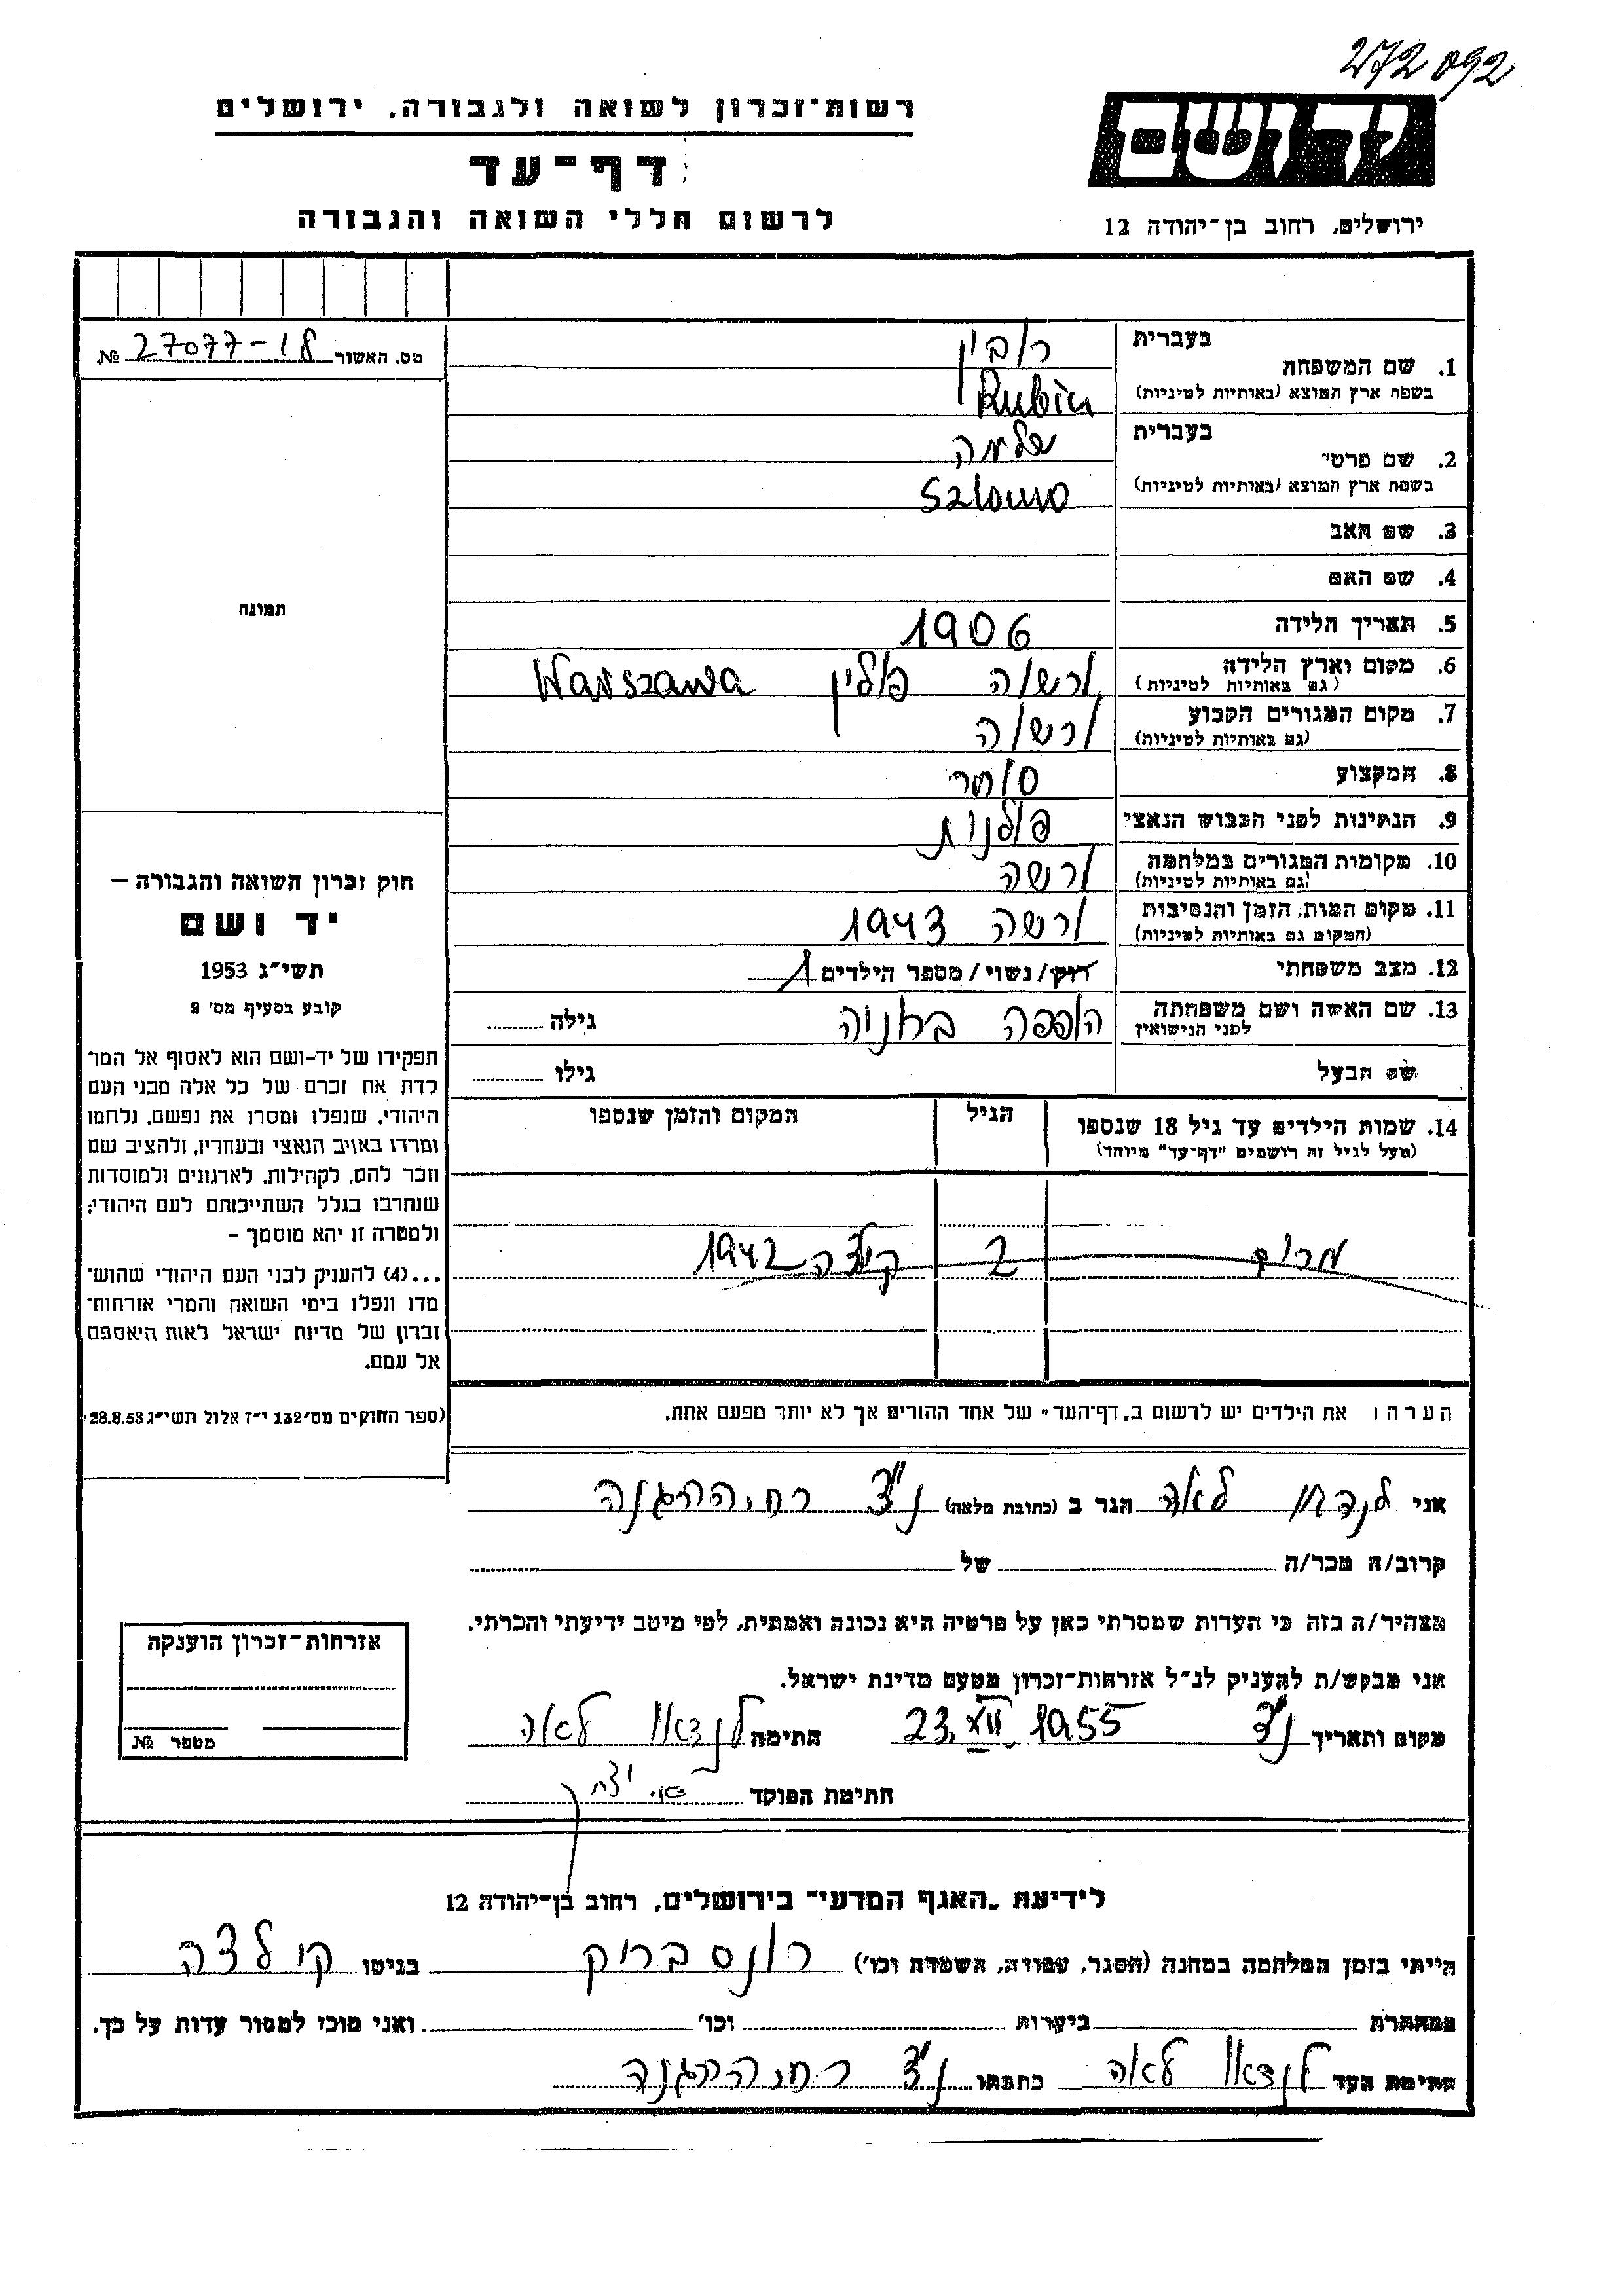 272092
רשות-זכרון לשואה ולגבורה, ירושלים
יד ושם
דף-עד
לרשום חללי השואה והגבורה
ירושלים, רחוב בן-יהודה 12
מס. האשור 27077-18 №
בעברית רובין
1. שם המשפחה
בשפת ארץ המוצא (באותיות לטיניות) Rubin
בעברית שלמה
2. שם פרטי
בשפת ארץ המוצא (באותיות לטיניות) Szlomo
3. שם האב
4. שם האם
תמונה
5. תאריך הלידה 1906
6. מקום וארץ הלידה ורשה פולין Warszawa
(גם באותיות לטיניות)
7. מקום המגורים הקבוע ורשה
(גם באותיות לטיניות)
8. המקצוע סוחר
9. הנתינות לפני הכבוש הנאצי פולנית
10. מקומות המגורים במלחמה ורשה
(גם באותיות לטיניות)
11. מקום המות, הזמן והנסיבות ורשה 1943
(המקום גם באותיות לטיניות)
12. מצב משפחתי רוק/נשוי/מספר הילדים 1
13. שם האשה ושם משפחתה
לפני הנישואין
גילה
שם הבעל גילו
14. שמות הילדים עד גיל 18 שנספו הגיל המקום והזמן שנספו
(מעל לגיל זה רושמים "דף-עד" מיוחד)
מרים 2 קילצה 1942
הערה: את הילדים יש לרשום ב"דף-העד" של אחד ההורים אך לא יותר מפעם אחת.
חוק זכרון השואה והגבורה –
יד ושם
תשי"ג 1953
קובע בסעיף מס' 2
תפקידו של יד-ושם הוא לאסוף אל המו־
לדת את זכרם של כל אלה מבני העם
היהודי, שנפלו ומסרו את נפשם, נלחמו
ומרדו באויב הנאצי ובעוזריו, ולהציב שם
וזכר להם, לקהילות, לארגונים ולמוסדות
שנחרבו בגלל השתייכותם לעם היהודי;
ולמטרה זו יהא מוסמך –
...(4) להעניק לבני העם היהודי שהוש־
מדו ונפלו בימי השואה והמרי אזרחות־
זכרון של מדינת ישראל לאות היאספם
אל עמם.
(ספר החוקים מס' 132 י"ז אלול תשי"ג 28.8.53)
אני לנדאו לאה הגר ב (כתובת מלאה) נ"צ רח. ההגנה
קרוב/ה מכר/ה של
מצהיר/ה בזה כי העדות שמסרתי כאן על פרטיה היא נכונה ואמתית, לפי מיטב ידיעתי והכרתי.
אני מבקש/ת להעניק לנ"ל אזרחות-זכרון מטעם מדינת ישראל.
מקום ותאריך נ"צ 23.XII.1955 חתימה לנדאו לאה
חתימת הפוקד
אזרחות-זכרון הוענקה
מספר №
לידיעת "האגף המדעי" בירושלים, רחוב בן-יהודה 12
הייתי בזמן המלחמה במחנה (הסגר, עבודה, השמדה וכו') רונסברוק בגיטו קילצה
במחתרת ביערות וכו' ואני מוכן למסור עדות על כך.
חתימת העד לנדאו לאה כתבתו נ"צ רח. ההגנה